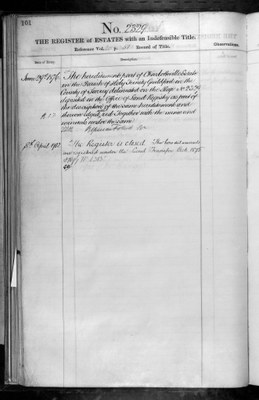 101
No. 2539
THE REGISTER of ESTATES with an Indefeasible Title.
Reference Vol. Record of Title.
Date of Entry.
Observations.
June 29th 1876 The hereditaments part of Charlotteville Estate
in the Parish of Holy Trinity Guildford in the
County of Surrey delineated on the Map No 2539
deposited in the Office of Land Registry as part of
the description of the same hereditaments and
thereon edged red Together with the mines and
minerals under the same
April The Register is closed The land
registered under the Land Transfer Act 1875